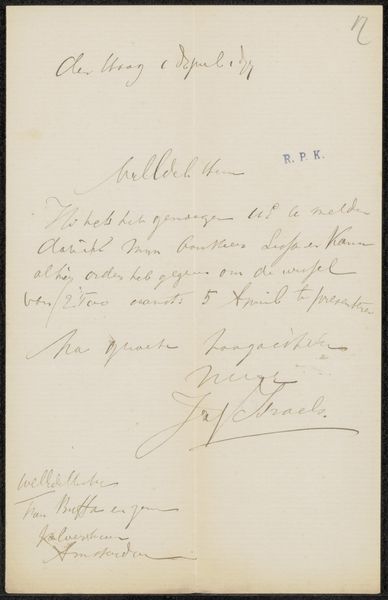 12
den Haag 1 April
R. P. K.
WelEdele Heer
Ik heb het genoegen UE te melden
dat ik mijn bankiers en Kann
alhier order heb gegeven om de wissel
van 5 April te presenteren
Na groete hoogachtend
Jozef Israels
WelEdele Heer
Fran Buffa en zonen
Kalverstraat
Amsterdam